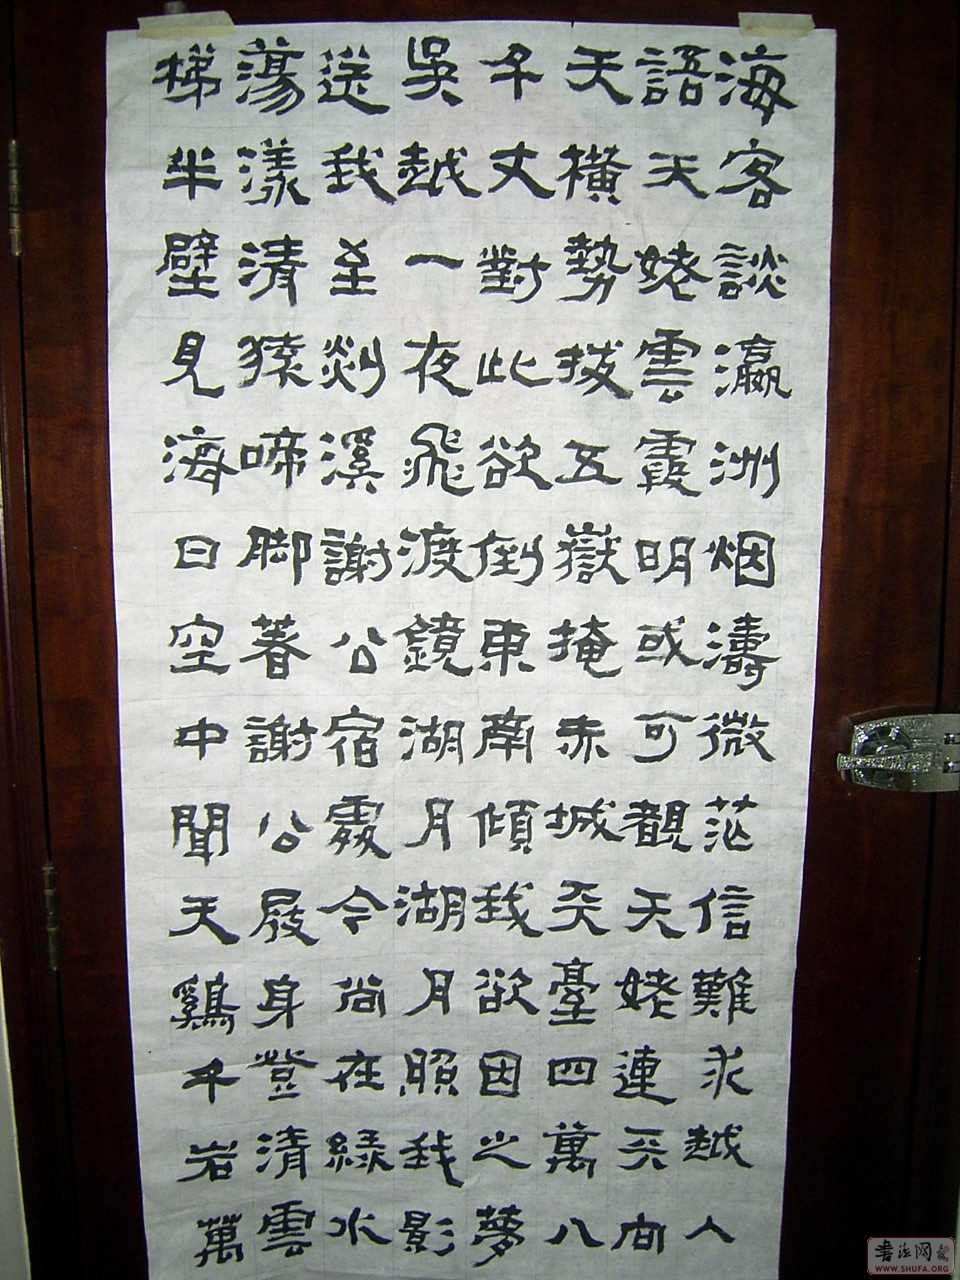 海客談瀛洲烟濤微茫信難求越人
語天姥雲霞明或可覩天姥連天向
天橫勢拔五嶽掩赤城天臺四萬八
千丈對此欲倒東南傾我欲因之夢
吳越一夜飛渡鏡湖月湖月照我影
送我至剡溪謝公宿處今尚在綠水
蕩漾清猿啼脚著謝公屐身登清雲
梯半壁見海日空中聞天鷄千岩萬
书法网
WWW.SHUFA.ORG